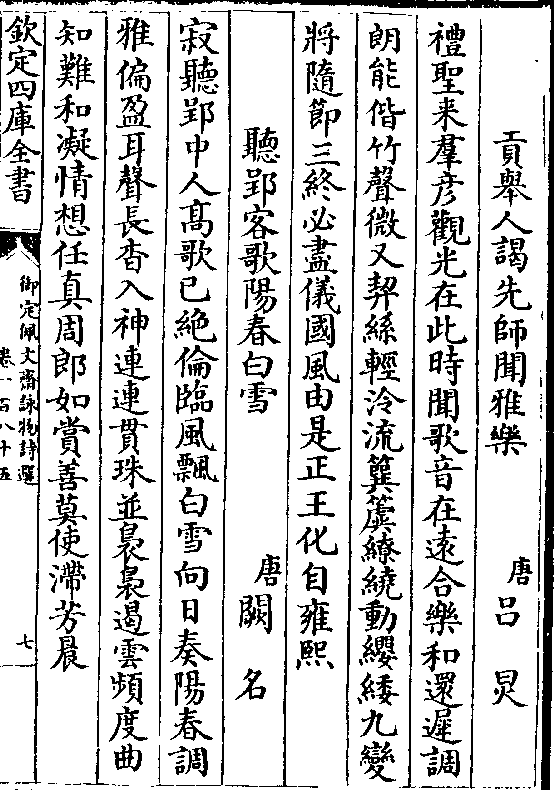 貢舉人謁先師聞雅樂
唐呂炅
禮聖来羣彦觀光在此時聞歌音在遠合樂和還遲調
朗能偕竹聲微又契絲輕泠流簨簴繚繞動纓緌九變
將隨節三終必盡儀國風由是正王化自雍熙
聽郢客歌陽春白雪
唐闕名
寂聽郢中人髙歌已絶倫臨風飄白雪向日奏陽春調
雅偏盈耳聲長杳入神連連貫珠並裊裊遏雲頻度曲
知難和凝情想任真周郎如賞善莫使滯芳晨
欽定四庫全書
御定佩文齋詠物詩選
卷一百八十五
七